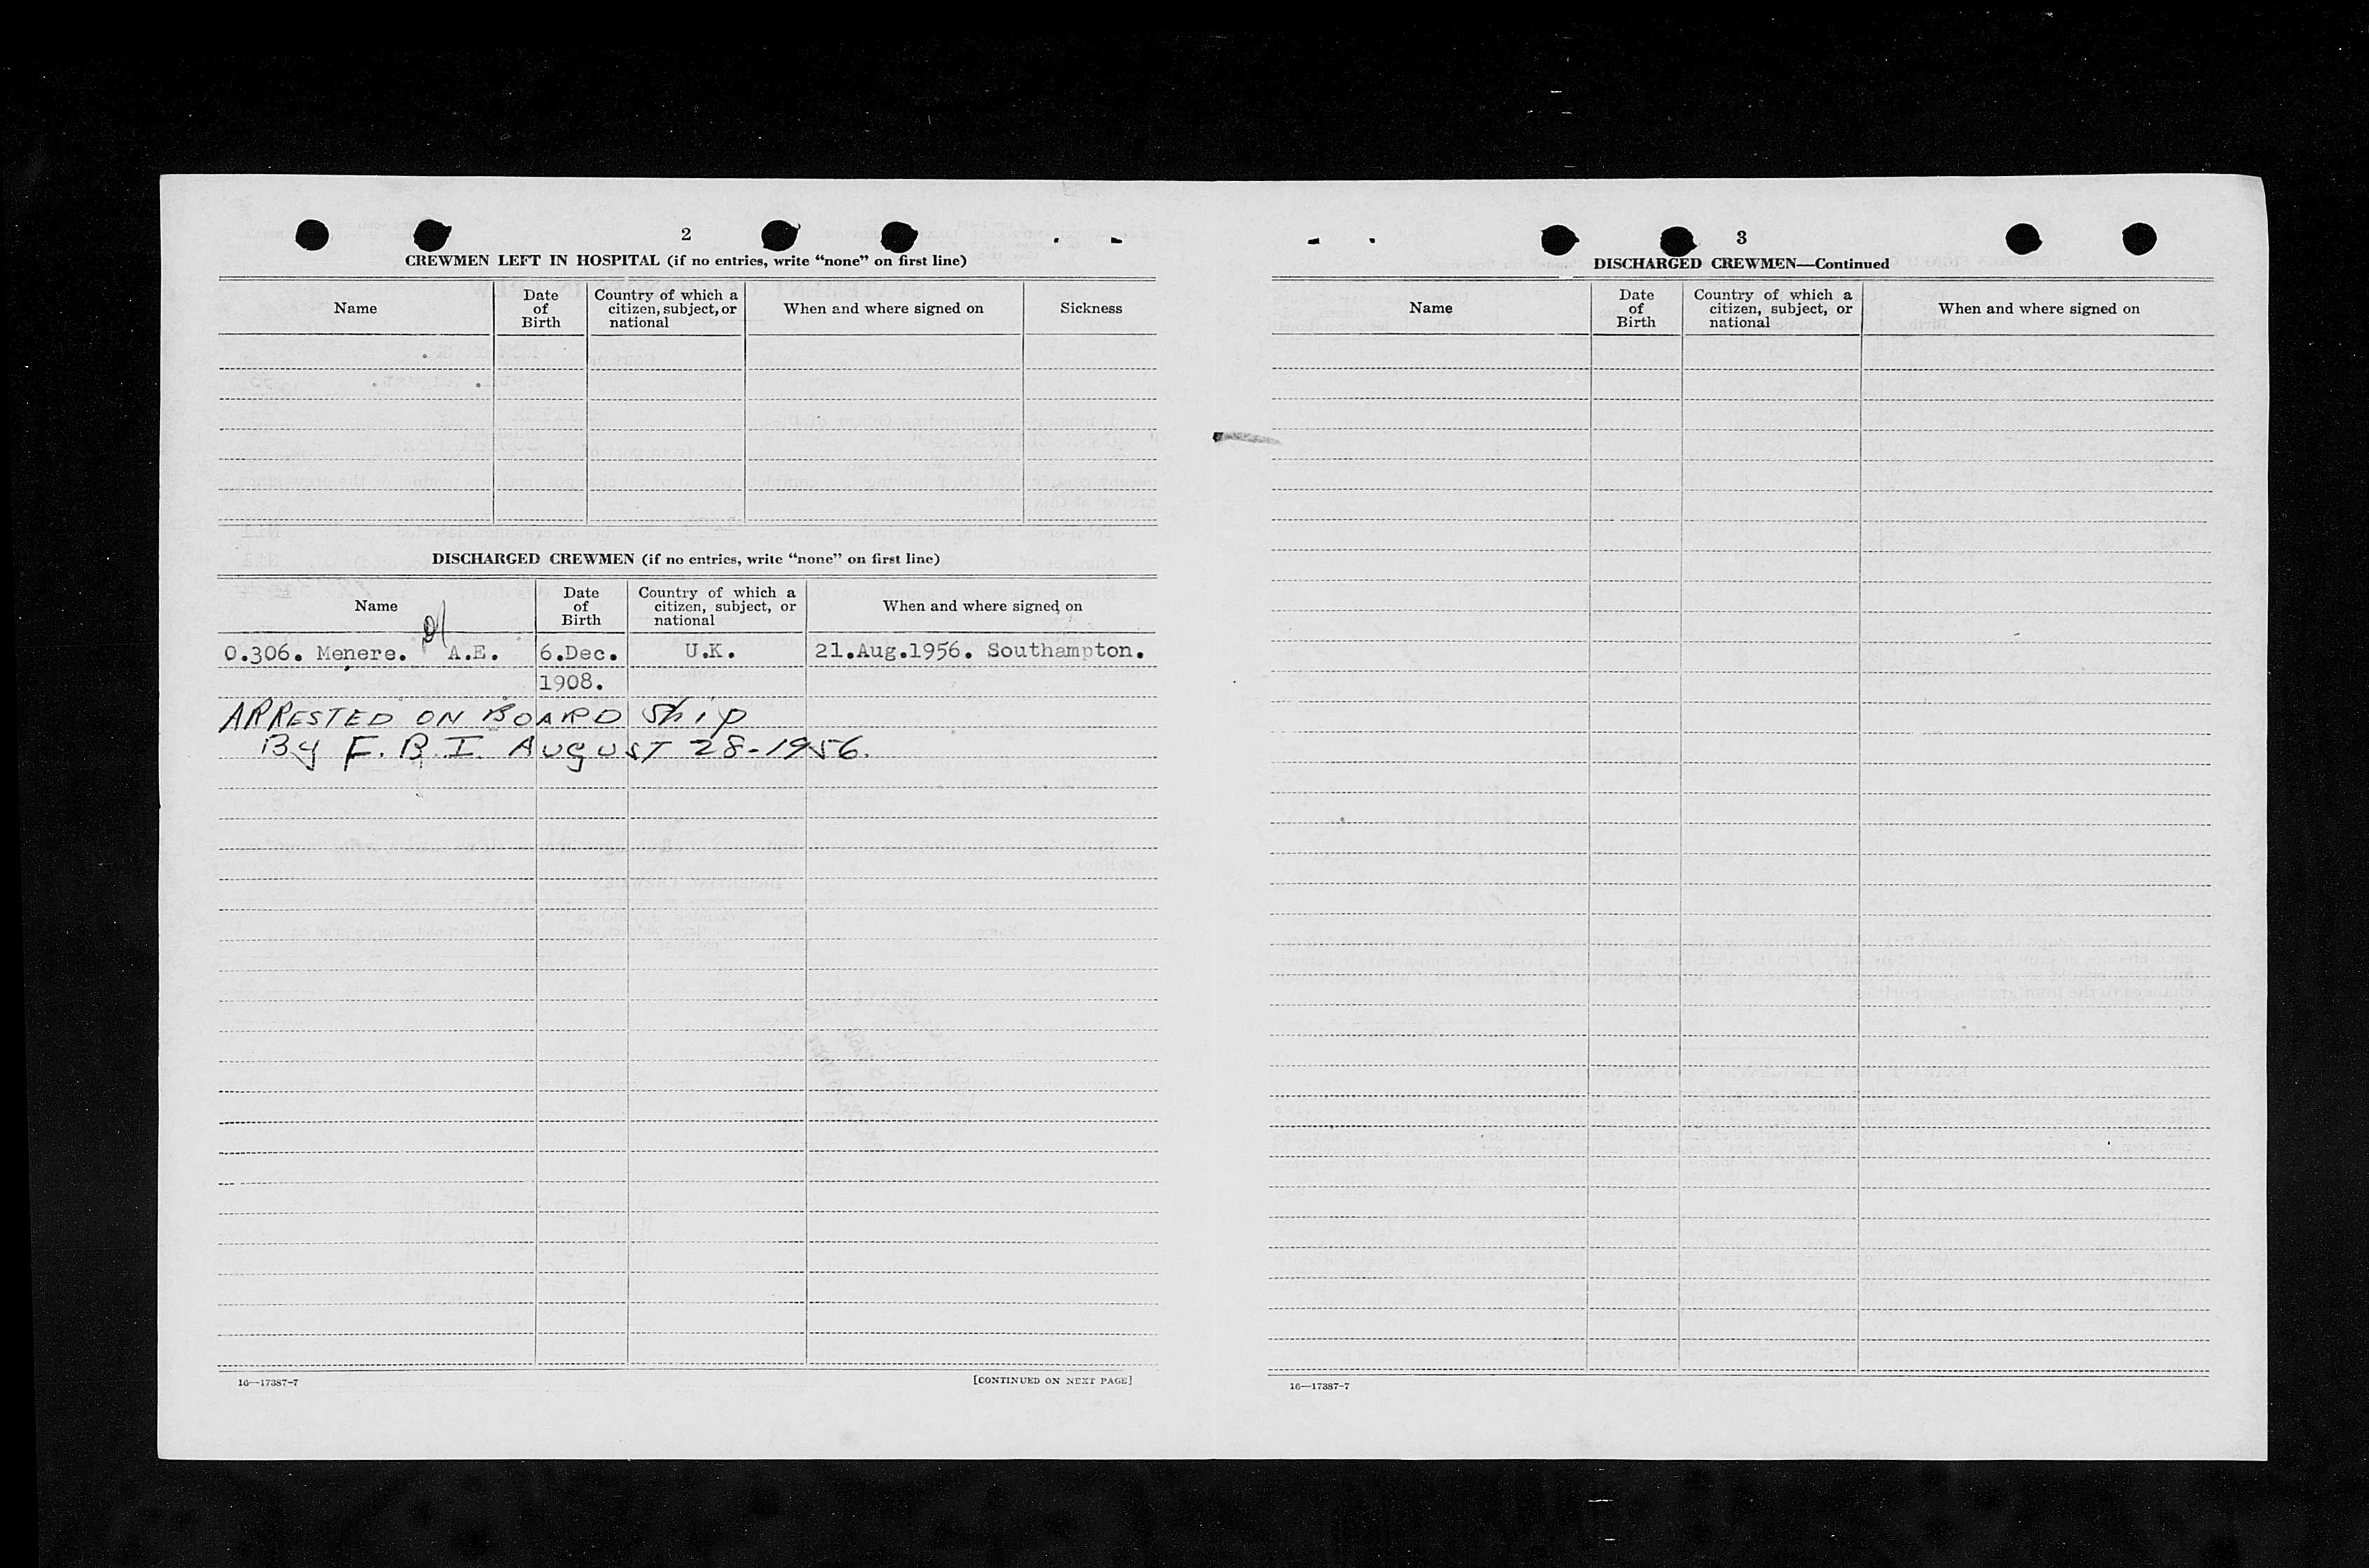 2
CREWMEN LEFT IN HOSPITAL (if no entries, write “none” on first line)
Name
Date of Birth
Country of which a citizen, subject, or national
When and where signed on
Sickness
DISCHARGED CREWMEN (if no entries, write “none” on first line)
Name
Date of Birth
Country of which a citizen, subject, or national
When and where signed on
0.306. Menere. A.E. 6.Dec. U.K. 21.Aug.1956. Southampton.
1908.
ARRESTED ON BOARD Ship
By F.B.I. AUGUST 28-1956.
16—17387-7
[CONTINUED ON NEXT PAGE]
3
DISCHARGED CREWMEN—Continued
Name
Date of Birth
Country of which a citizen, subject, or national
When and where signed on
16—17387-7